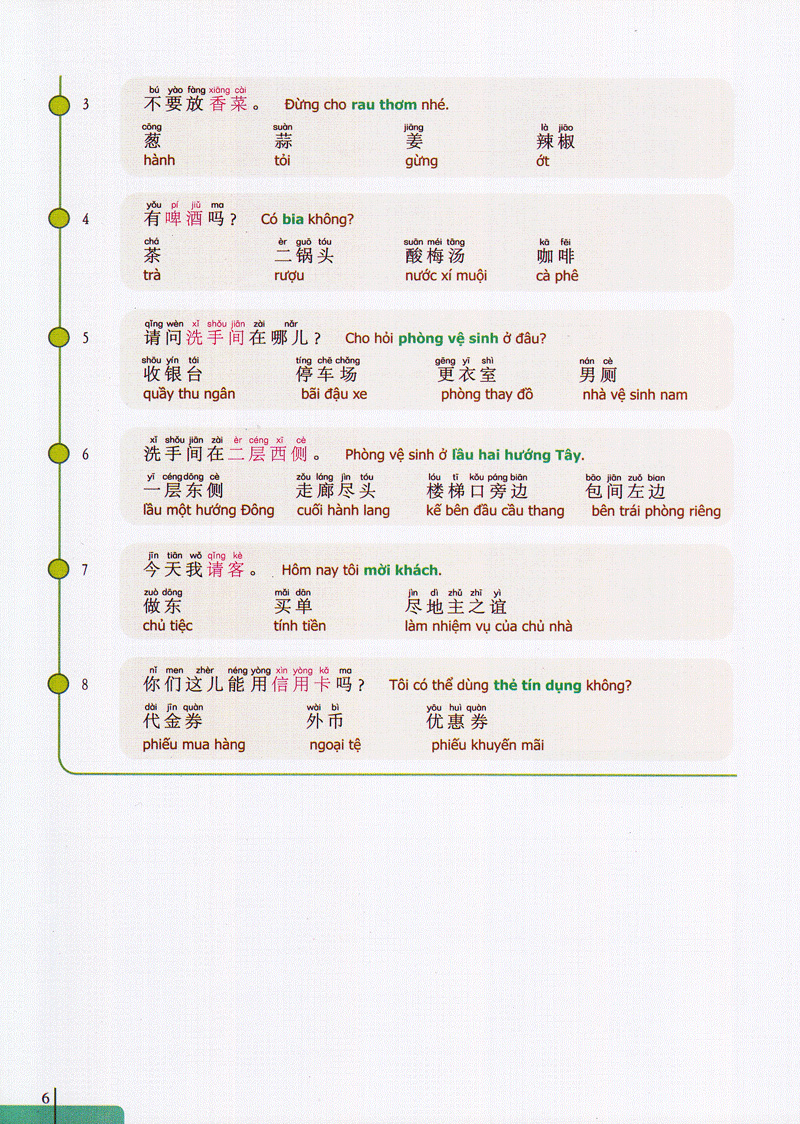 3
bú yào fàng xiāng cài
不要放香菜。 Đừng cho rau thơm nhé.
cōng suàn jiāng là jiāo
葱 蒜 姜 辣椒
hành tỏi gừng ớt
4
yǒu pí jiǔ ma
有啤酒吗? Có bia không?
chá èr guō tóu suān méi tāng kā fēi
茶 二锅头 酸梅汤 咖啡
trà rượu nước xí muội cà phê
5
qǐng wèn xǐ shǒu jiān zài nǎr
请问洗手间在哪儿? Cho hỏi phòng vệ sinh ở đâu?
shōu yín tái tíng chē chǎng gēng yī shì nán cè
收银台 停车场 更衣室 男厕
quầy thu ngân bãi đậu xe phòng thay đồ nhà vệ sinh nam
6
xǐ shǒu jiān zài èr céng xī cè
洗手间在二层西侧。 Phòng vệ sinh ở lầu hai hướng Tây.
yī céng dōng cè zǒu láng jìn tóu lóu tī kǒu páng biān bāo jiān zuǒ bian
一层东侧 走廊尽头 楼梯口旁边 包间左边
lầu một hướng Đông cuối hành lang kế bên đầu cầu thang bên trái phòng riêng
7
jīn tiān wǒ qǐng kè
今天我请客。 Hôm nay tôi mời khách.
zuò dōng mǎi dān jìn dì zhǔ zhī yì
做东 买单 尽地主之谊
chủ tiệc tính tiền làm nhiệm vụ của chủ nhà
8
nǐ men zhèr néng yòng xìn yòng kǎ ma
你们这儿能用信用卡吗? Tôi có thể dùng thẻ tín dụng không?
dài jīn quàn wài bì yōu huì quàn
代金券 外币 优惠券
phiếu mua hàng ngoại tệ phiếu khuyến mãi
6